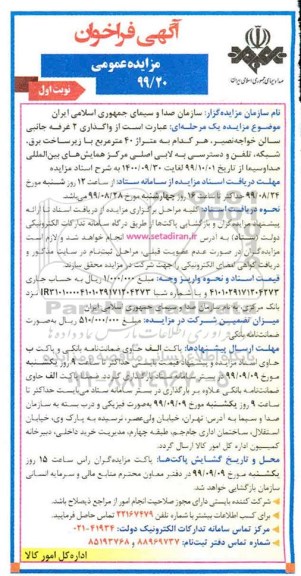 آگهی فراخوان
مزایده عمومی
۹۹/۲۰
نوبت اول
صدا و سیمای جمهوری اسلامی ایران
نام سازمان مزایده‌گزار: سازمان صدا و سیمای جمهوری اسلامی ایران
موضوع مزایده یک مرحله‌ای: عبارت است از واگذاری ۲ غرفه جانبی
سالن خواجه‌نصیر، هر کدام به متراژ ۲۰ مترمربع با زیرساخت برق،
شبکه، تلفن و دسترسی به لابی اصلی مرکز همایش‌های بین‌المللی
صداوسیما از تاریخ ۹۹/۱۰/۰۱ لغایت ۱۴۰۰/۰۹/۳۰ به شرح اسناد مزایده
مهلت دریافت اسناد مزایده از سامانه ستاد: از ساعت ۱۲ روز شنبه مورخ
۹۹/۰۸/۲۴ لغایت ساعت ۱۲ روز چهارشنبه مورخ ۹۹/۰۸/۲۸ می‌باشد.
نحوه دریافت اسناد: کلیه مراحل برگزاری مزایده از دریافت اسناد تا ارائه
پیشنهاد مزایده‌گران و بازگشایی پاکت‌ها از طریق درگاه سامانه تدارکات الکترونیکی
دولت (ستاد) به آدرس www.setadiran.ir انجام خواهد شد و لازم است
مزایده‌گران در صورت عدم عضویت قبلی، مراحل ثبت‌نام در سایت مذکور و
دریافت گواهی امضای الکترونیکی را جهت شرکت در مزایده محقق سازند.
قیمت اسناد و نحوه واریز وجه: مبلغ ۱/۰۰۰/۰۰۰ ریال به حساب جاری
بانک مرکزی به نام سازمان صدا و سیمای جمهوری اسلامی ایران
میزان تضمین شرکت در مزایده: مبلغ ۵۱۰/۰۰۰/۰۰۰ ریال به‌صورت
ضمانتنامه بانکی
مهلت ارسال پیشنهادها:
ساعت ۹ روز یکشنبه مورخ ۹۹/۰۹/۰۹ به‌صورت فیزیکی و دربسته به سازمان
صدا و سیما به آدرس: تهران، خیابان ولی‌عصر، نرسیده به پارک وی، خیابان
استقلال، ساختمان اداری جام‌جم، طبقه چهارم، مدیریت خرید داخلی، دبیرخانه
کمیسیون اداره کل امور کالا ارسال گردد.
محل و تاریخ گشایش پاکت‌ها: پاکت مزایده‌گران راس ساعت ۱۵ روز
یکشنبه مورخ ۹۹/۰۹/۰۹ در دفتر معاون محترم منابع مالی و سرمایه انسانی
سازمان بازگشایی خواهد شد.
شرکت کننده بایستی دارای مجوز صلاحیت انجام امور از مراجع ذیصلاح باشد.
برای کسب اطلاعات بیشتر با شماره تلفن ۲۲۱۶۷۴۷۹ تماس حاصل فرمایید.
مرکز تماس سامانه تدارکات الکترونیک دولت: ۴۱۹۳۴-۰۲۱
شماره تماس دفتر ثبت‌نام: ۸۸۹۶۹۷۳۷ و ۸۵۱۹۳۷۶۸
اداره کل امور کالا